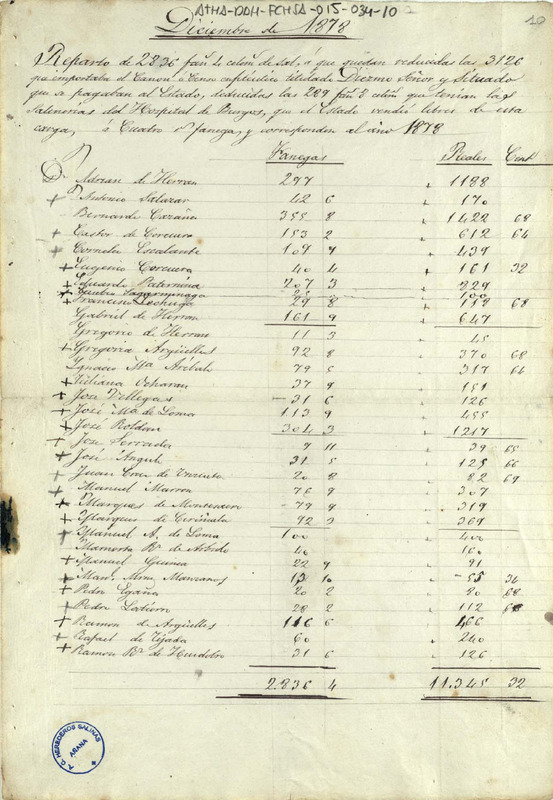 ATHA-DDH-FCHSA-015-034-10
10
Diciembre de 1878
Reparto de 2836 fan.s 4 celem.s de Sal, á que quedan reducidas las 3126
que importaba el Canon ó Censo enfiteutico titulado Diezmo Señor y Situado
que se pagaban al Estado, deducidas las 289 fan.s 8 celem. que tenian las
Salinerias del Hospital de Burgos, que el Estado vendió libres de esta
carga, á Cuatro r.s fanega, y corresponden al año 1878
Fanegas Reales Cent
D. Adrian de Herran 297 1188
+ Antonio Salazar 42 6 170
Bernardo Carañu 355 8 1422 68
+ Castor de Corcuera 153 2 612 64
+ Cornelio Escalante 109 9 439
+ Eugenio Corcuera 40 4 161 32
+ Eduardo Paternina 207 3 829
+ Eusebio 25 100
+ Francisco 29 8 118 68
Gabriel de Herran 161 9 647
Gregorio de Herran 11 3 45
+ Gregoria Argüelles 92 8 370 68
Ignacio M.a Arébalo 79 5 317 64
+ Juliana Ocharan 37 9 151
+ José Villegas 31 6 126
+ José M.a de Loma 113 9 455
+ José Roldan 304 3 1217
+ José Serrada 9 11 39 65
+ José Angulo 31 5 125 66
+ Juan Cruz de 20 8 82 69
+ Manuel Marron 76 9 307
+ Marques de Montesacro 79 9 319
+ Marques de Ciriñuela 92 3 369
+ Manuel A. de Loma 100 400
Mamerta R.z de 40 160
+ Manuel Guinea 22 9 91
+ Man.l Mrn. Manzanos 13 10 55 34
+ Pedro Egaña 20 2 80 68
+ Pedro Laturro 28 2 112 68
+ Ramon de Argüelles 116 6 466
+ Rafael de Tejada 60 240
+ Ramon R.z de Huidobro 31 6 126
2.836 4 11.345 32
A. G. HEREDEROS SALINAS
ARANA